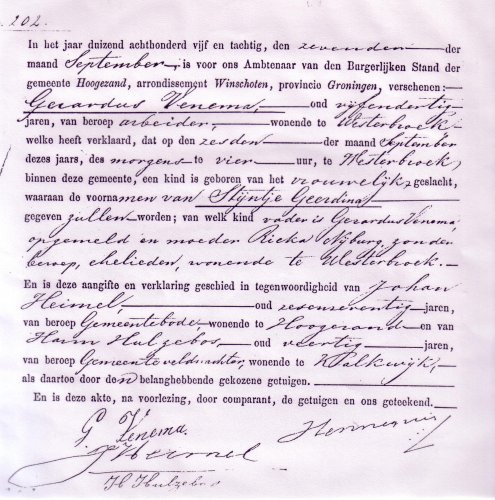 202.
In het jaar duizend achthonderd vijf en tachtig, den zevenden der
maand September, is voor ons Ambtenaar van den Burgerlijken Stand der
gemeente Hoogezand, arrondissement Winschoten, provincie Groningen, verschenen:
Gerardus Venema, oud vijfendertig
jaren, van beroep arbeider, wonende te Westerbroek
welke heeft verklaard, dat op den zesden der maand September
dezes jaars, des morgens te vier uur, te Westerbroek,
binnen deze gemeente, een kind is geboren van het vrouwelijk geslacht,
waaraan de voornamen van Stijntje Geerdina
gegeven zullen worden; van welk kind vader is Gerardus Venema,
opgemeld en moeder Rieka Nijburg, zonder
beroep, echelieden, wonende te Westerbroek.
En is deze aangifte en verklaring geschied in tegenwoordigheid van Johan
Heimel, oud zesenzeventig jaren,
van beroep Gemeentebode wonende te Hoogezand en van
Harm Hulzebos oud veertig jaren,
van beroep Gemeenteveldwachter, wonende te Kalkwijk,
als daartoe door den belanghebbende gekozene getuigen.
En is deze akte, na voorlezing, door comparant, de getuigen en ons geteekend.
G Venema.
J Heimel
H Hulzebos